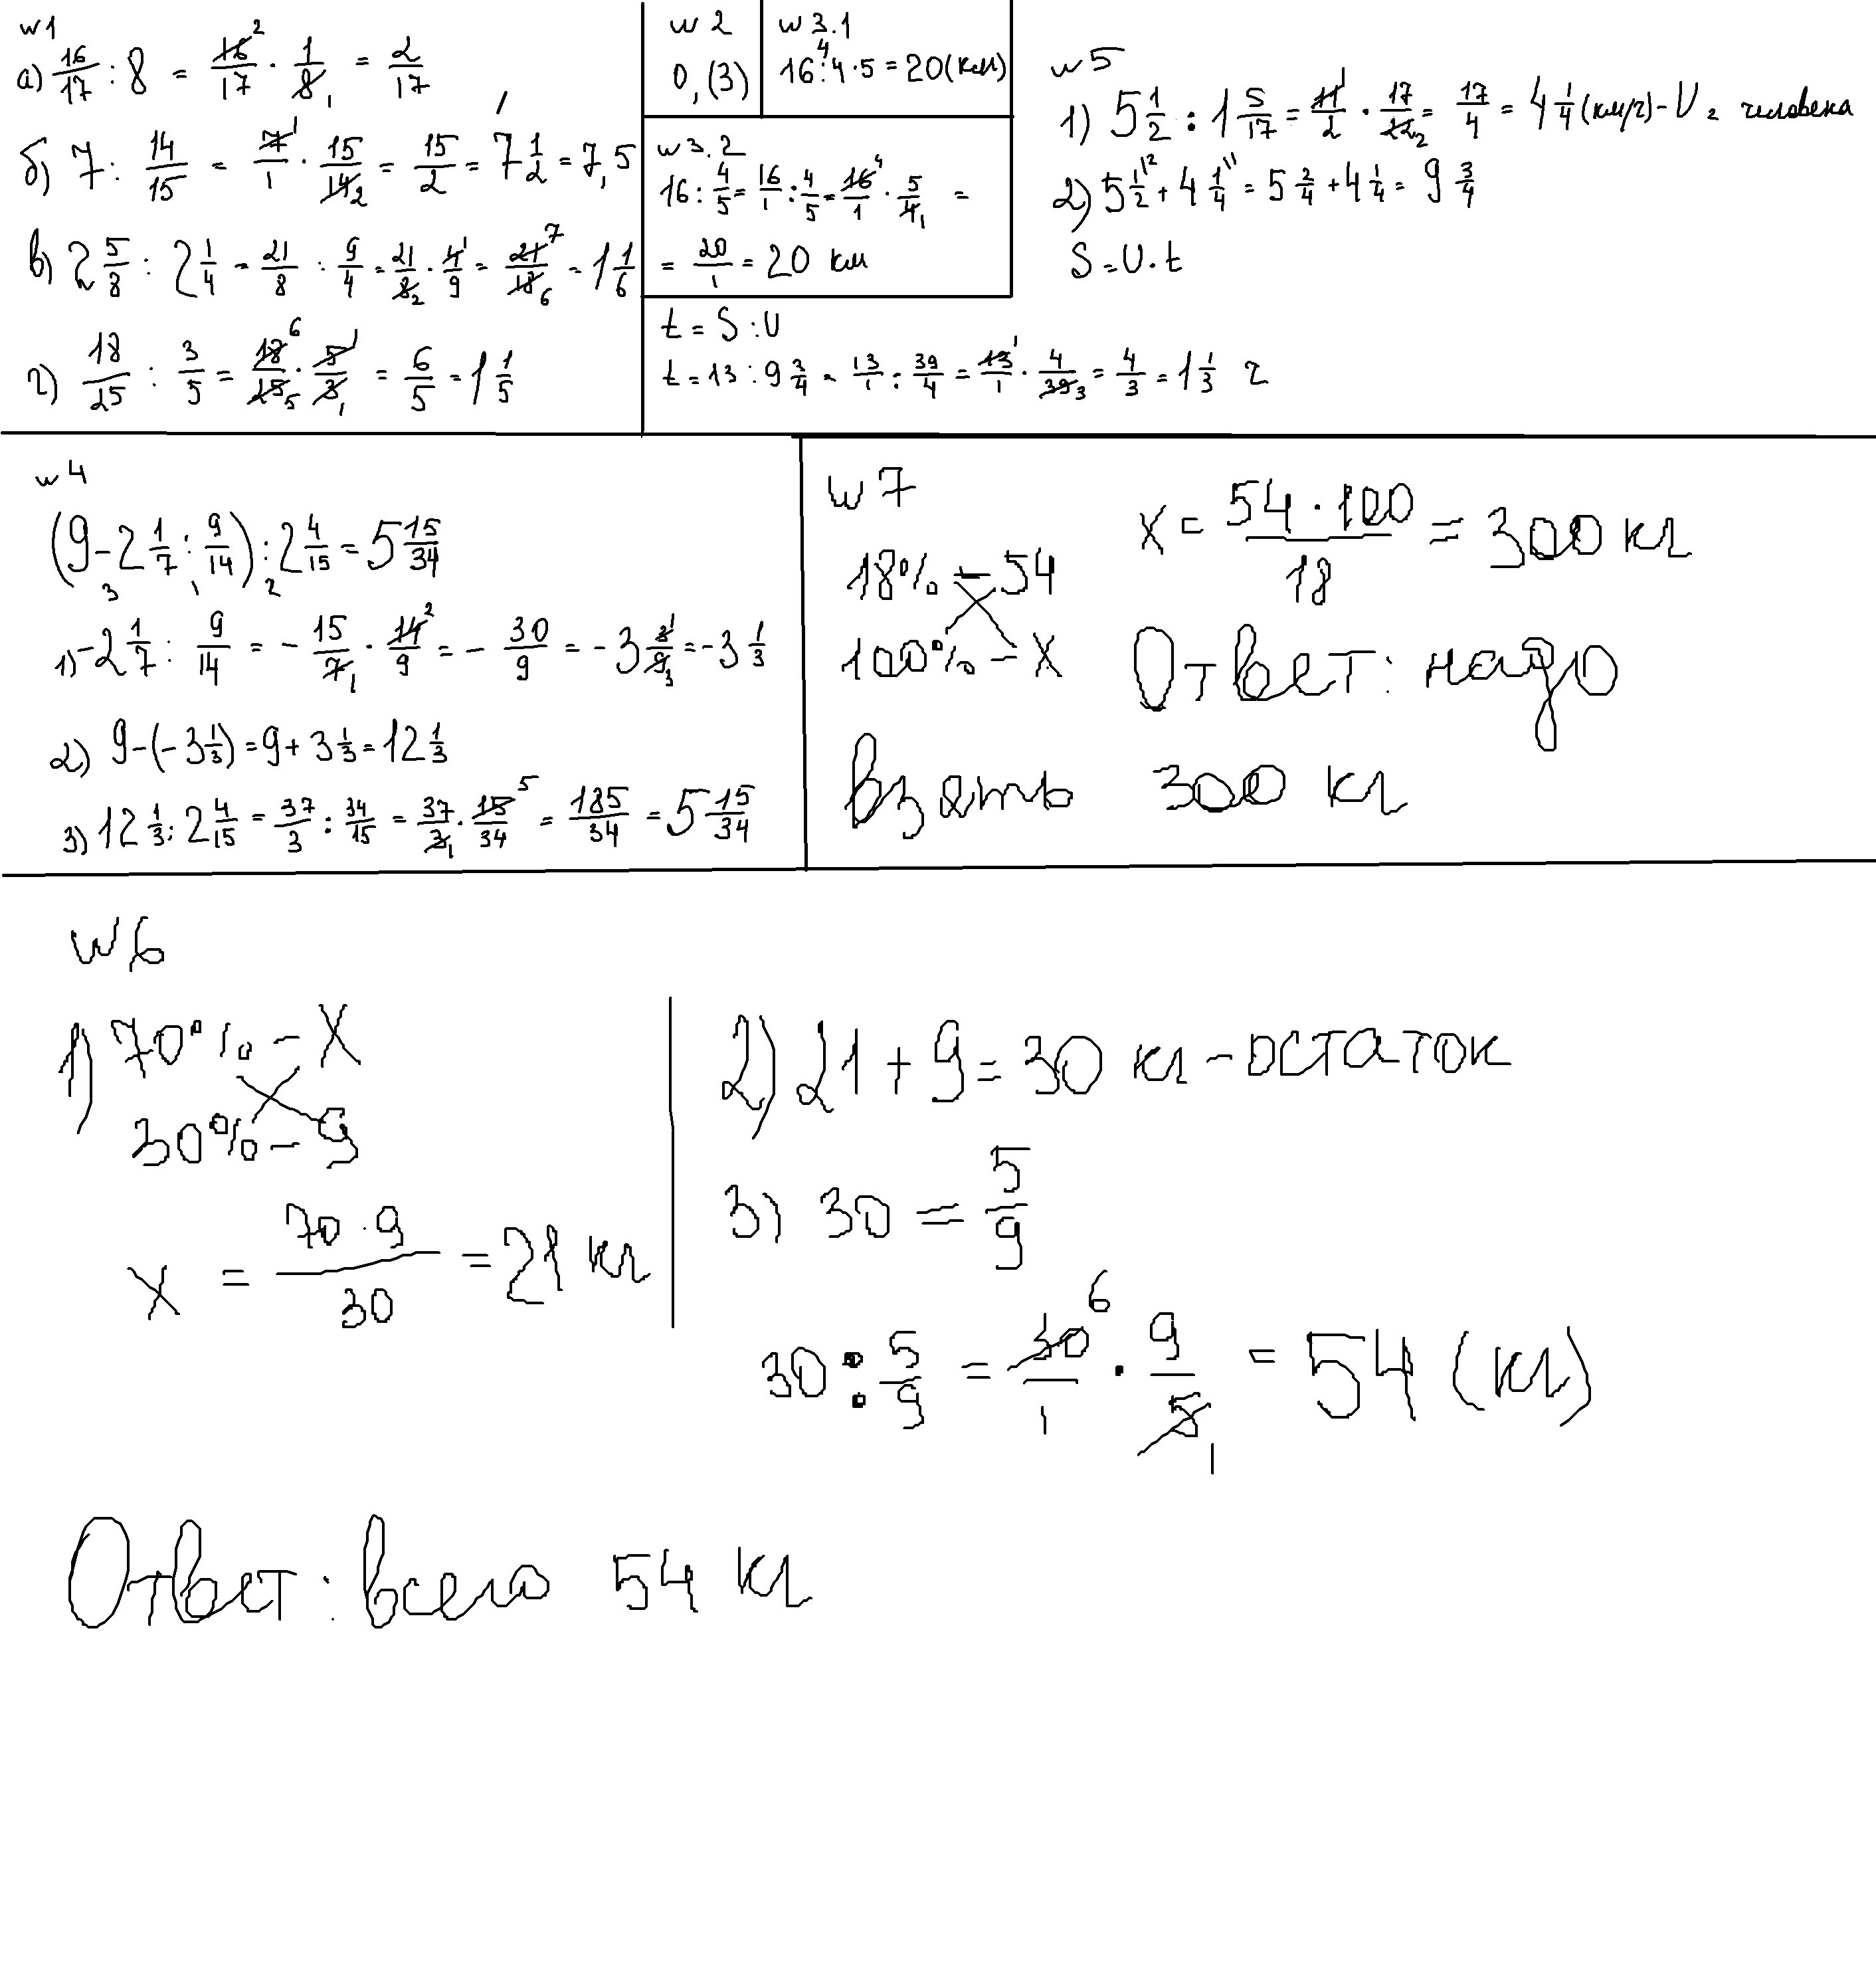 w1
а) 16/17 : 8 = 16²/17 · 1/8₁ = 2/17
б) 7 : 14/15 = 7¹/1 · 15/14₂ = 15/2 = 7 1/2 = 7,5
в) 2 5/8 : 2 1/4 = 21/8 : 9/4 = 21/8₂ · 4¹/9 = 21⁷/18₆ = 1 1/6
г) 18/25 : 3/5 = 18⁶/25₅ · 5¹/3₁ = 6/5 = 1 1/5
w2
0,(3)
w3.1
16 :⁴ 4 · 5 = 20 (км)
w3.2
16 : 4/5 = 16/1 : 4/5 = 16⁴/1 · 5/4₁ =
= 20/1 = 20 км
w5
1) 5 1/2 : 1 5/17 = 11¹/2 · 17/22₂ = 17/4 = 4 1/4 (км/ч) - U 2 человека
2) 5 1/2 ¹² + 4 1/4 ¹¹ = 5 2/4 + 4 1/4 = 9 3/4
S = U · t
t = S : U
t = 13 : 9 3/4 = 13/1 : 39/4 = 13¹/1 · 4/39₃ = 4/3 = 1 1/3 ч
w4
(9 -₃ 2 1/7 :₁ 9/14) :₂ 2 4/15 = 5 15/34
1) -2 1/7 : 9/14 = - 15/7₁ · 14²/9 = - 30/9 = - 3 3¹/9₃ = - 3 1/3
2) 9 - (- 3 1/3) = 9 + 3 1/3 = 12 1/3
3) 12 1/3 : 2 4/15 = 37/3 : 34/15 = 37/3₁ · 15⁵/34 = 185/34 = 5 15/34
w7
18% - 54
100% - x
x = 54 · 100/18 = 300 кг
Ответ: надо
взять 300 кг
w6
1) 70% - x
30% - 9
x = 70 · 9/30 = 21 кг
2) 21 + 9 = 30 кг - остаток
3) 30 = 5/9
30 : 5/9 = 30⁶/1 · 9/5₁ = 54 (кг)
Ответ: всего 54 кг